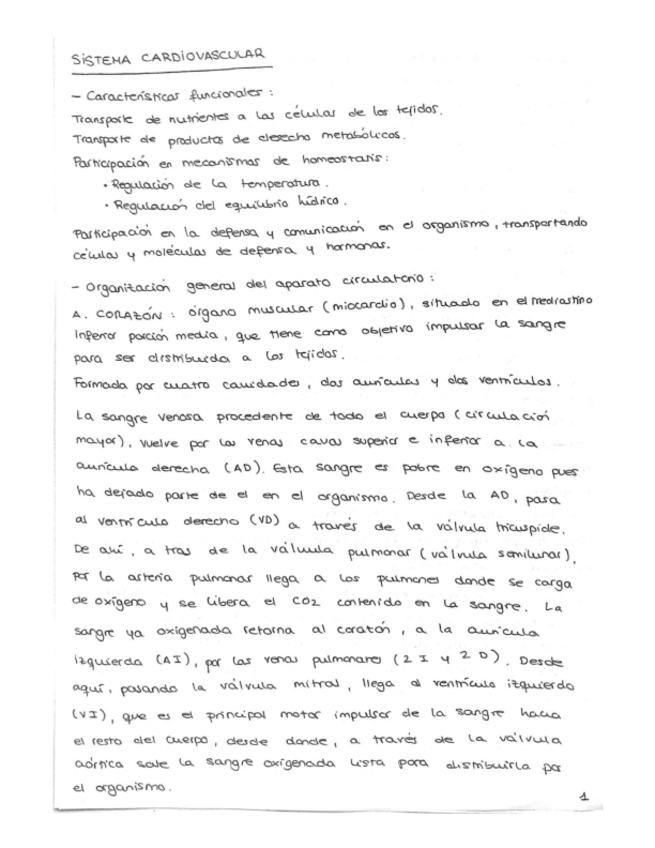 SISTEMA CARDIOVASCULAR
- Características funcionales:
Transporte de nutrientes a las células de los tejidos.
Transporte de productos de desecho metabólicos.
Participación en mecanismos de homeostasis:
• Regulación de la temperatura.
• Regulación del equilibrio hídrico.
Participación en la defensa y comunicación en el organismo, transportando
células y moléculas de defensa y hormonas.
- Organización general del aparato circulatorio:
A. CORAZÓN: órgano muscular (miocardio), situado en el mediastino
inferior porción media, que tiene como objetivo impulsar la sangre
para ser distribuida a los tejidos.
Formada por cuatro cavidades, dos aurículas y dos ventrículos.
La sangre venosa procedente de todo el cuerpo (circulación
mayor), vuelve por las venas cavas superior e inferior a la
aurícula derecha (AD). Esta sangre es pobre en oxígeno pues
ha dejado parte de el en el organismo. Desde la AD, pasa
al ventrículo derecho (VD) a través de la válvula tricúspide.
De ahí, a tras de la válvula pulmonar (válvula semilunar),
por la arteria pulmonar llega a los pulmones donde se carga
de oxígeno y se libera el CO2 contenido en la sangre. La
sangre ya oxigenada retorna al corazón, a la aurícula
izquierda (AI), por las venas pulmonares (2 I y 2 D). Desde
aquí, pasando la válvula mitral, llega al ventrículo izquierdo
(VI), que es el principal motor impulsor de la sangre hacia
el resto del cuerpo, desde donde, a través de la válvula
aórtica sale la sangre oxigenada lista para distribuirla por
el organismo.
1